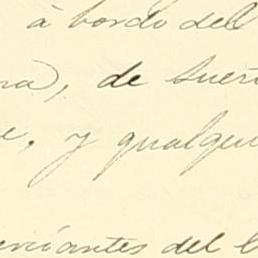 á bordo del
na), de suert
e, y qualque
erciantes del b